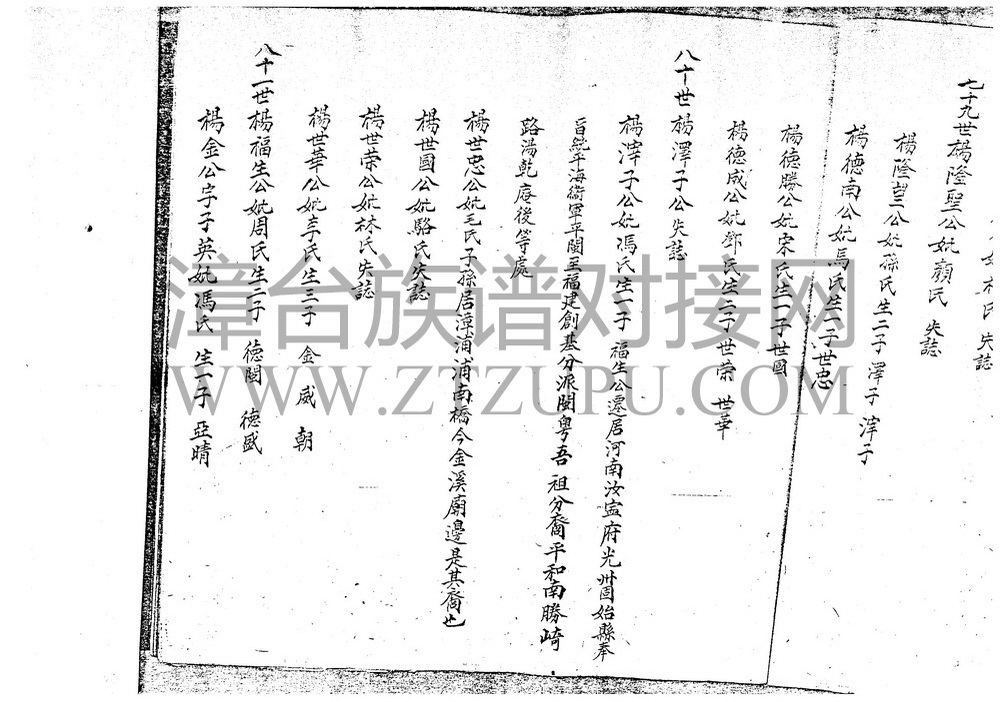 妣 氏 失誌
七十九世楊隆聖公妣顏氏 失誌
楊隆望公妣孫氏生二子 澤子 滓子
楊德南公妣馬氏生一子世忠
楊德勝公妣宋氏生一子世國
楊德成公妣鄧氏生二子世荣 世華
八十世 楊澤子公失誌
楊滓子公妣馮氏生一子 福生公遷居河南汝寍府光州固始縣奉
旨統平海衛軍平閩王福建創基分派閩粤吾祖分裔平和南勝崎
路湯乾庵後等處
楊世忠公妣毛氏子孫居漳浦浦南橋今金溪廟邊是其裔也
楊世國公妣駱氏失誌
楊世荣公妣林氏失誌
楊世華公妣李氏生三子 金 威 朝
八十一世楊福生公妣周氏生二子 德閩 德盛
楊金公字子英妣馮氏 生一子 亞晴
漳台族谱对接网
WWW.ZTZUPU.COM